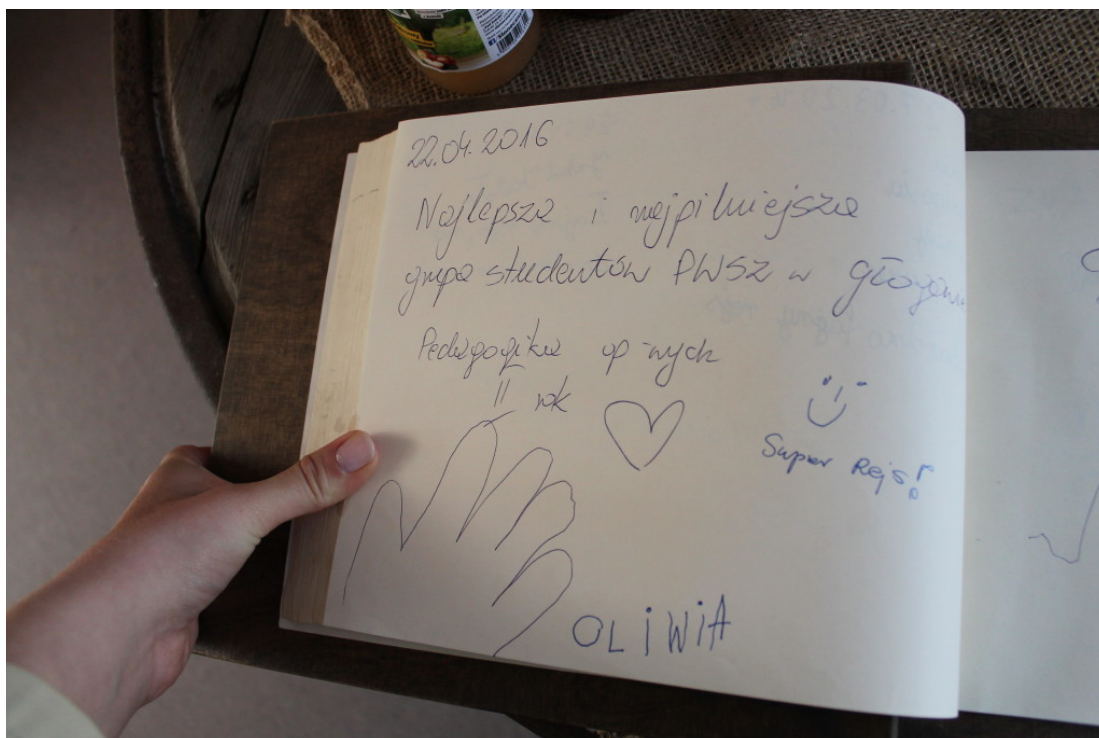 22.04.2016
Najlepsza i najpilniejsza
grupa studentów PWSZ w Głogowie
Pedagogika op-wych
II rok
Super Rejs!
OLiWiA